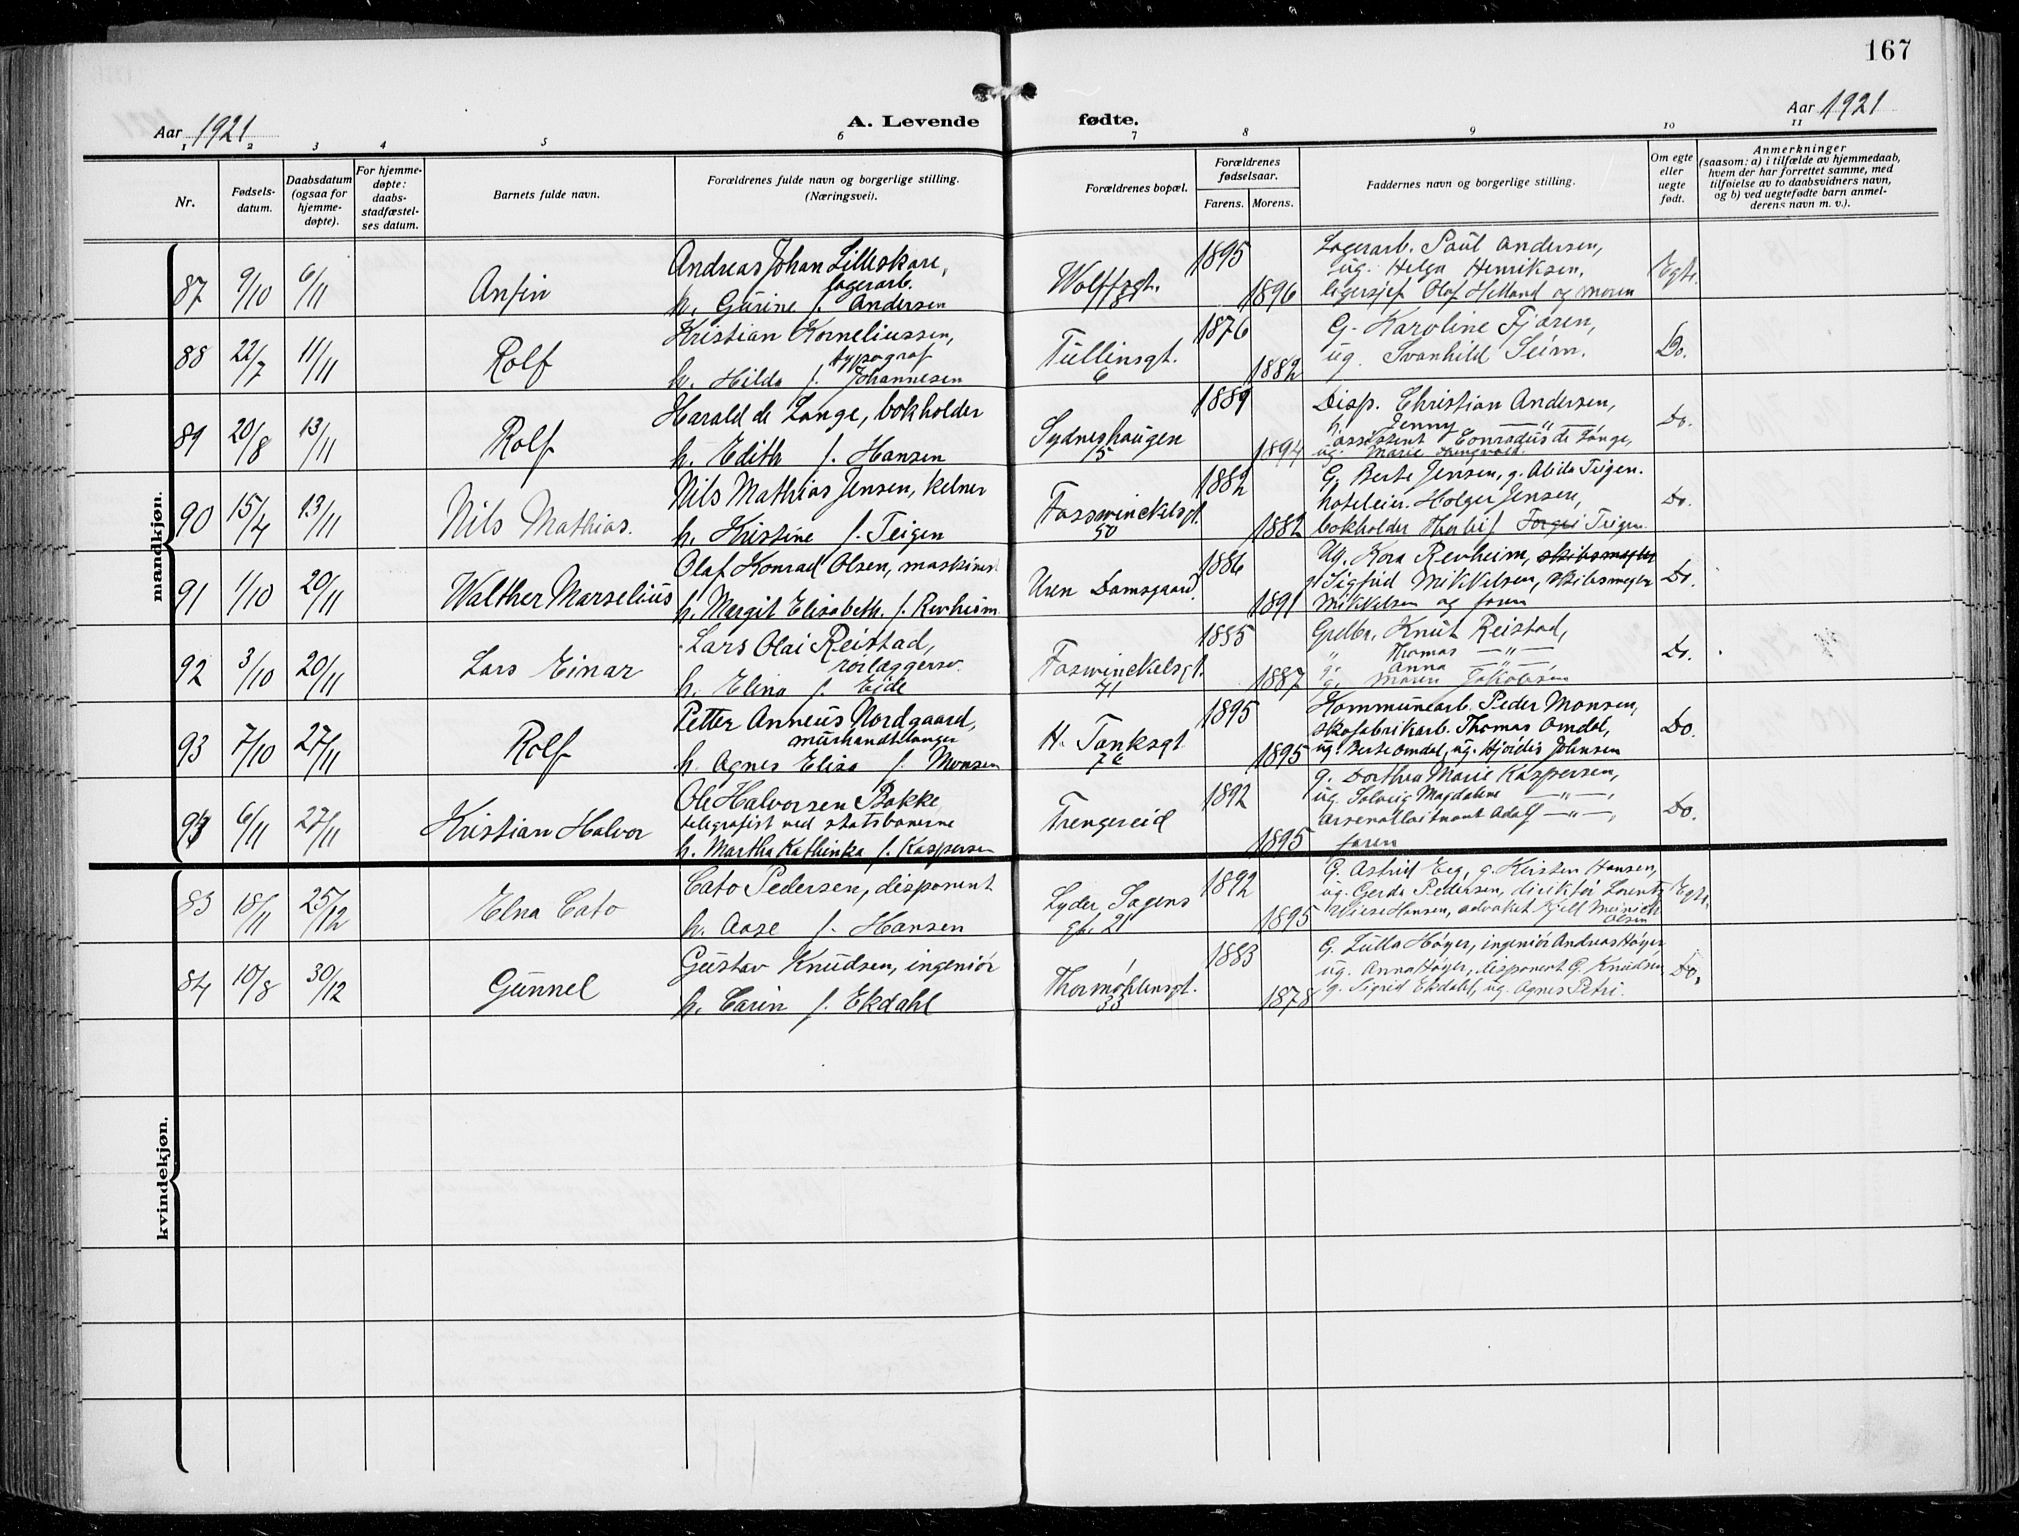 167
Aar 1921
A. Levende fødte.
Aar 1921
1 2 3 4 5 6 7 8 9 10 11
Nr.
Fødsels-
datum.
Daabsdatum
(ogsaa for
hjemme-
døpte).
For hjemme-
døpte:
daabs-
stadfæstel-
ses datum.
Barnets fulde navn.
Forældrenes fulde navn og borgerlige stilling.
(Næringsvei).
Forældrenes bopæl.
Forældrenes
fødselsaar.
Farens. Morens.
Faddernes navn og borgerlige stilling.
Om egte
eller
uegte
født.
Anmerkninger
(saasom: a) i tilfælde av hjemmedaab,
hvem der har forrettet samme, med
tilføielse av to daabsvidners navn,
og b) ved uegtefødte barn anmel-
derens navn m. v.).
mandkjøn.
87 9/10 6/11 Anfin
Andreas Johan Lilleskare,
lagerarb.
h. Gurine f. Andersen
Wolffsgt.
8
1895
1896
Lagerarb. Paul Andersen,
ug. Helga Henriksen,
lagersjef Olaf Helland og moren
Egte.
88 22/7 11/11 Rolf
Kristian Korneliussen,
typograf
h. Hilda f. Johannesen
Tullinsgt.
6
1876
1882
G. Karoline Fjæren,
ug. Svanhild Seim.
Do.
89 20/8 13/11 Rolf
Harald de Lange, bokholder
h. Edith f. Hansen
Sydneshaugen
15
1889
1894
Disp. Christian Andersen,
h. Jenny —"—
assistent Conradus de Lange,
ug. Marie
Do.
90 15/4 13/11 Nils Mathias.
Nils Mathias Jensen, kelner
h. Kristine f. Teigen
Fosswinckelsgt.
50
1882
1882
G. Berte Jensen, g. Alida Teigen.
hoteleier Holger Jensen,
bokholder Teigen.
Do.
91 1/10 20/11 Walther Marselius
Olaf Konrad Olsen, maskinist
h. Margit Elisabeth f. Revheim
Uren Damsgaard.
1886
1891
Ug. Kora Revheim, skibsmægler
g. Sigfrid Mikkelsen, skibsmægler
Mikkelsen og faren
Do.
92 3/10 20/11 Lars Einar
Lars Olai Reistad,
rørlæggersv.
h. Elina f. Eide
Foswinckelsgt.
71
1885
1887
Grdbr. Knut Reistad,
" Thomas —"—
g. Anna —"—
g. Maren Jakobsen
Do.
93 7/10 27/11 Rolf
Petter Anneus Nordgaard,
murhandtlanger
h. Agnes Elisa f. Monsen
H. Tanksgt.
76
1895
1895
Kommunearb. Peder Monsen,
skofabrikarb. Thomas Omdal,
ug. Berte Omdal, ug. Hjørdis Johnsen
Do.
94 6/11 27/11 Kristian Halvor
Ole Halvorsen Bakke
telegrafist ved statsbanerne
h. Martha Kathinka f. Kaspersen
Trengereid
1892
1895
g. Dorthea Marie Kaspersen,
ug. Solveig Magdalene —"—,
arsenalløitnant Adolf —"—,
faren
Do.
kvindekjøn.
83 18/11 25/12 Elna Cato
Cato Pedersen, disponent
h. Aase f. Hansen
Lyder Sagens
gt. 21
1892
1895
G. Astrid Eeg, g. Kirsten Hansen,
ug. Gerda Pedersen, direktør Lorentz
Wiese Hansen, advokat Kjell Meinich
Olsen
Egte.
84 10/8 30/12 Gunnel
Gustav Knudsen, ingeniør
h. Carin f. Ekdahl
Thormøhlensgt.
33
1883
1878
G. Lulla Høyer, ingeniør Andreas Høyer
ug. Anna Høyer, disponent G. Knudsen
g. Sigrid Ekdahl, ug. Agnes Petri.
Do.